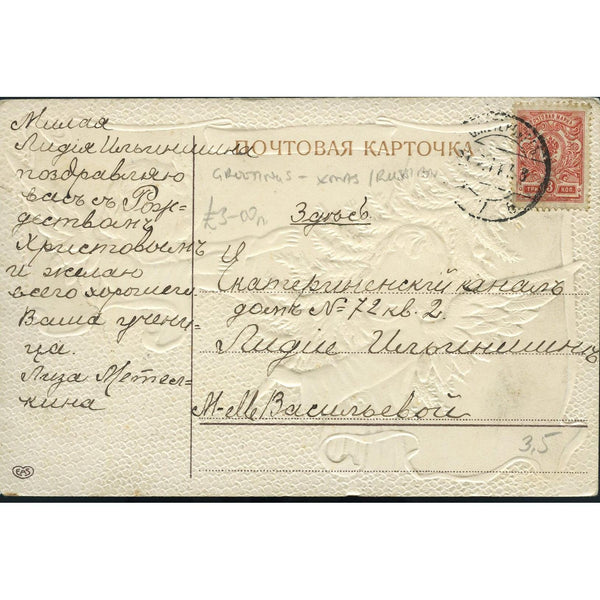 Милая
Лидія Ильинишна
поздравляю
васъ съ Рож-
дествомъ
Христовымъ
и желаю
всего хорошего
Ваша учени-
ца.
Лиза Метел-
кина
ПОЧТОВАЯ КАРТОЧКА
GREETINGS - XMAS / RUSSIAN
£3-00
Здѣсь.
Екатериненскій каналъ
домъ № 72 кв. 2.
Лидіи Ильинишнѣ
M-lle Васильевой
3,5
EAS
ПОЧТОВАЯ МАРКА
ТРИ 3 КОП.